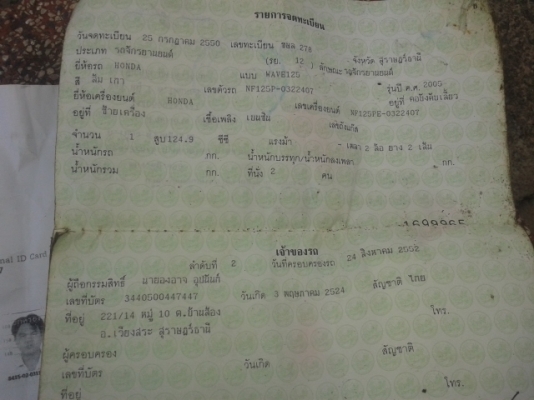 รายการจดทะเบียน
วันจดทะเบียน 25 กรกฎาคม 2550 เลขทะเบียน 278 จังหวัด สุราษฎร์ธานี
ประเภท รถจักรยานยนต์ (รย. 12 ) ลักษณะ รถจักรยานยนต์
ยี่ห้อรถ HONDA แบบ WAVE125 รุ่นปี ค.ศ. 2005
สี เทา เลขตัวรถ NF125P-0322407 อยู่ที่ คอ
ยี่ห้อเครื่องยนต์ HONDA เลขเครื่องยนต์ NF125PE-0322407
อยู่ที่ ซ้ายเครื่อง เชื้อเพลิง เบนซิน เลขถังแก๊ส
จำนวน 1 สูบ 124.9 ซีซี แรงม้า - เพลา 2 ล้อ ยาง 2 เส้น
น้ำหนักรถ กก. น้ำหนักบรรทุก/น้ำหนักลงเพลา กก.
น้ำหนักรวม กก. ที่นั่ง 2 คน
เจ้าของรถ
ลำดับที่ 2 วันที่ครอบครองรถ 24 สิงหาคม 2552
ผู้ถือกรรมสิทธิ์
เลขที่บัตร 3440500447447 วันเกิด 3 พฤษภาคม 2524 สัญชาติ ไทย
ที่อยู่ 221/14 หมู่ 10 ต.บ้านส้อง โทร.
อ.เวียงสระ สุราษฎร์ธานี
ผู้ครอบครอง
เลขที่บัตร วันเกิด สัญชาติ
ที่อยู่ โทร.
nal ID Card